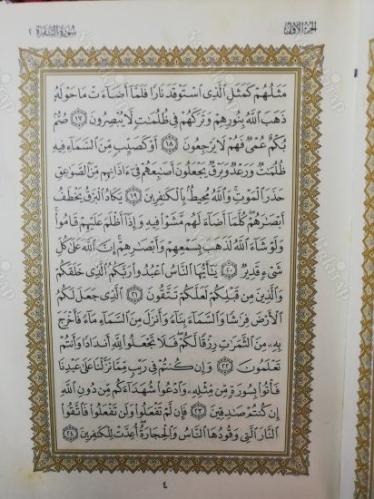 الجزء الأول سورة البقرة ٢
مثلهم كمثل الذى استوقد نارا فلما أضاءت ما حوله
ذهب الله بنورهم وتركهم فى ظلمت لا يبصرون ١٧ صم
بكم عمى فهم لا يرجعون ١٨ أو كصيب من السماء فيه
ظلمت ورعد وبرق يجعلون أصبعهم فى ءاذانهم من الصوعق
حذر الموت والله محيط بالكفرين ١٩ يكاد البرق يخطف
أبصرهم كلما أضاء لهم مشوا فيه وإذا أظلم عليهم قاموا
ولو شاء الله لذهب بسمعهم وأبصرهم إن الله على كل
شىء قدير ٢٠ يأيها الناس اعبدوا ربكم الذى خلقكم
والذين من قبلكم لعلكم تتقون ٢١ الذى جعل لكم
الأرض فرشا والسماء بناء وأنزل من السماء ماء فأخرج
به من الثمرت رزقا لكم فلا تجعلوا لله أندادا وأنتم
تعلمون ٢٢ وإن كنتم فى ريب مما نزلنا على عبدنا
فأتوا بسورة من مثله وادعوا شهداءكم من دون الله
إن كنتم صدقين ٢٣ فإن لم تفعلوا ولن تفعلوا فاتقوا
النار التى وقودها الناس والحجارة أعدت للكفرين ٢٤
٤